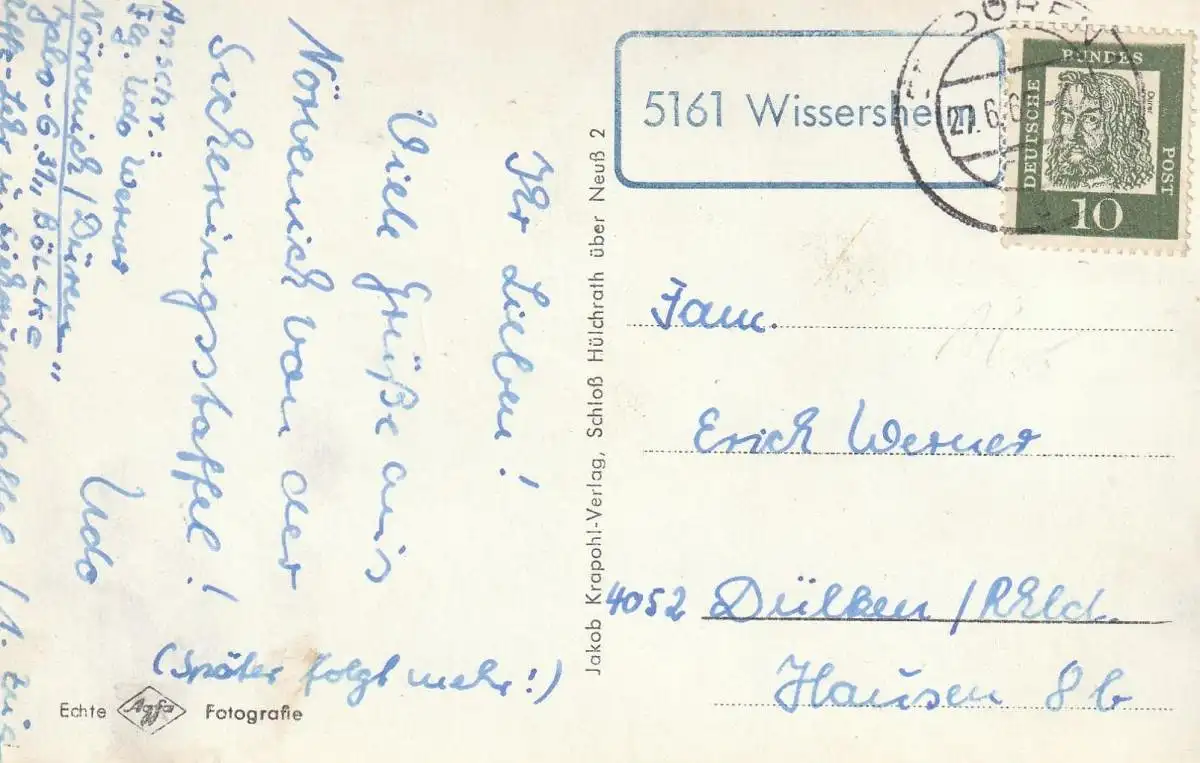 Ihr Lieben!
Viele Grüße aus
Nörvenich von der
Sicherungsstaffel!
Udo
(Später folgt mehr!)
Anschr.:
Flg. Udo Werner
Jabo-G. 31 „Bölcke
Nörvenich/Düren"
Echte Agfa Fotografie
Jakob Krapohl-Verlag, Schloß Hülchrath über Neuß 2
5161 Wissersheim
DÜREN
27.6.6
DEUTSCHE BUNDES POST
Dürer
10
Fam.
Erich Werner
4052 Dülken/Rhld.
Hausen 8b